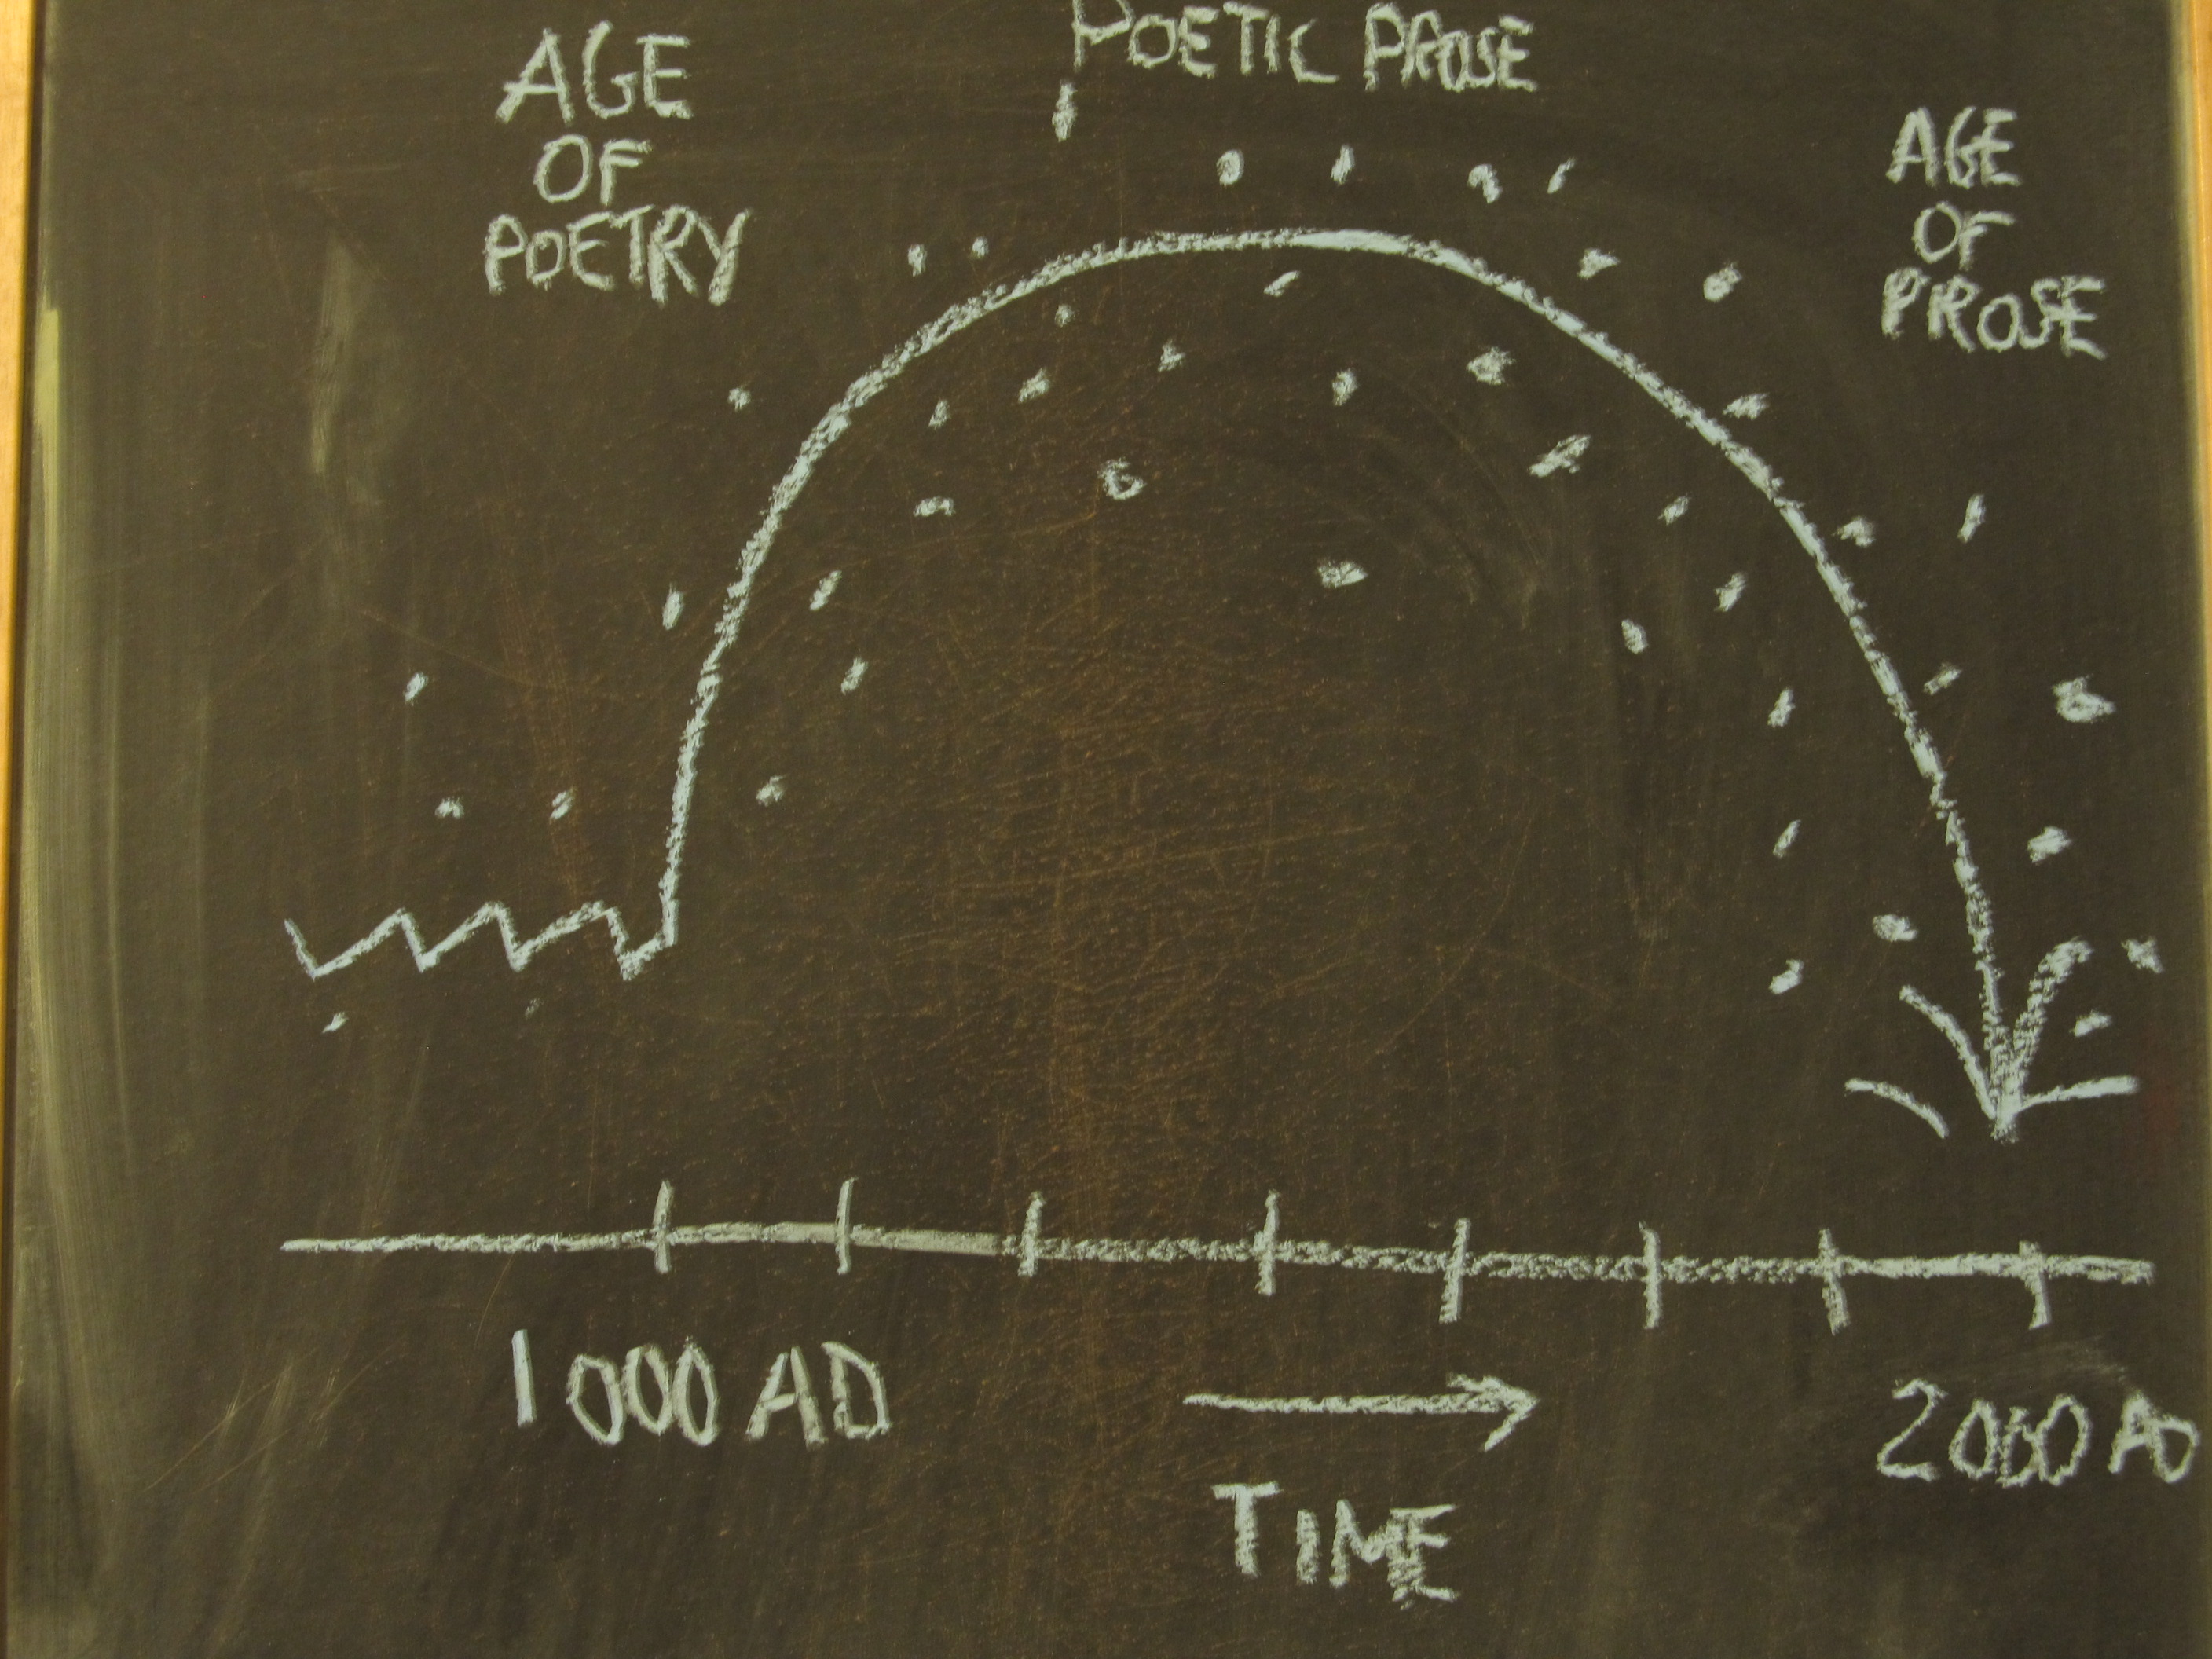 AGE
OF
POETRY
POETIC PROSE
AGE
OF
PROSE
1000 AD
2000 AD
TIME